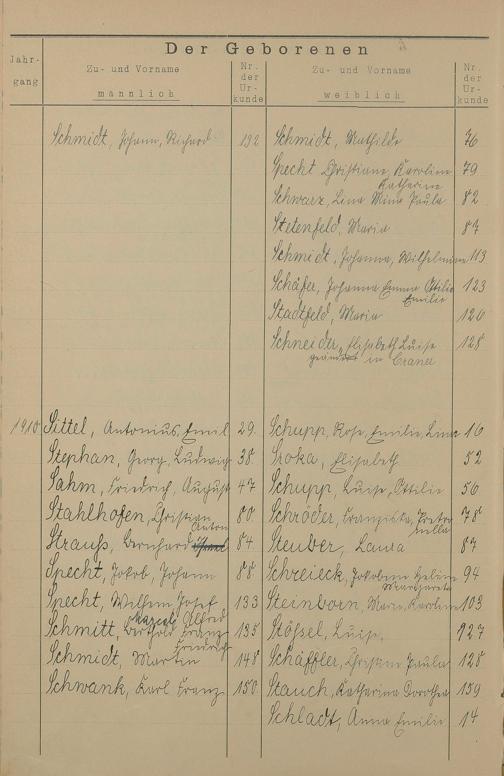 Der Geborenen
Jahr-
gang
Zu- und Vorname
männlich
Nr.
der
Ur-
kunde
Zu- und Vorname
weiblich
Nr.
der
Ur-
kunde
Schmidt, Johann, Richard 192
Schmidt, Mathilde 76
Specht Christiane, Karoline 79
Katharine
Schwarz, Lina Mina Paula 82
Stetenfeld, Maria 87
Schmidt, Johanna, Wilhelmine 113
Schäfer, Johanna Emma Ottilie 123
Emilie
Stadtfeld, Maria 126
Schneider, Elisabeth Luise 128
geändert in Craner
1910 Sittel, Antonius, Emil 29
Schupp, Rosa, Emilie, Lina 16
Stephan, Georg, Ludwig 38
Sroka, Elisabeth 52
Sahm, Friedrich, August 47
Schupp, Luise, Ottilie 56
Stahlhofen, Christian 80
Anton
Schröder, Franziska, 78
Strauß, Bernhard 84
Steuber, Laura 87
Specht, Jakob, Johann 88
Schreieck, Jakobine 94
Margareta
Specht, Wilhelm Josef 133
Steinborn, Maria, Karoline 103
Schmitt, Berthold Franz 135
Alfred
Friedrich
Stössel, Luise, 127
Schmidt, Martin 148
Schäffler, Christine Paula 128
Schwank, Karl Franz 150
Stauch, Katharina Dorothea 159
Schladt, Anna Emilie 14